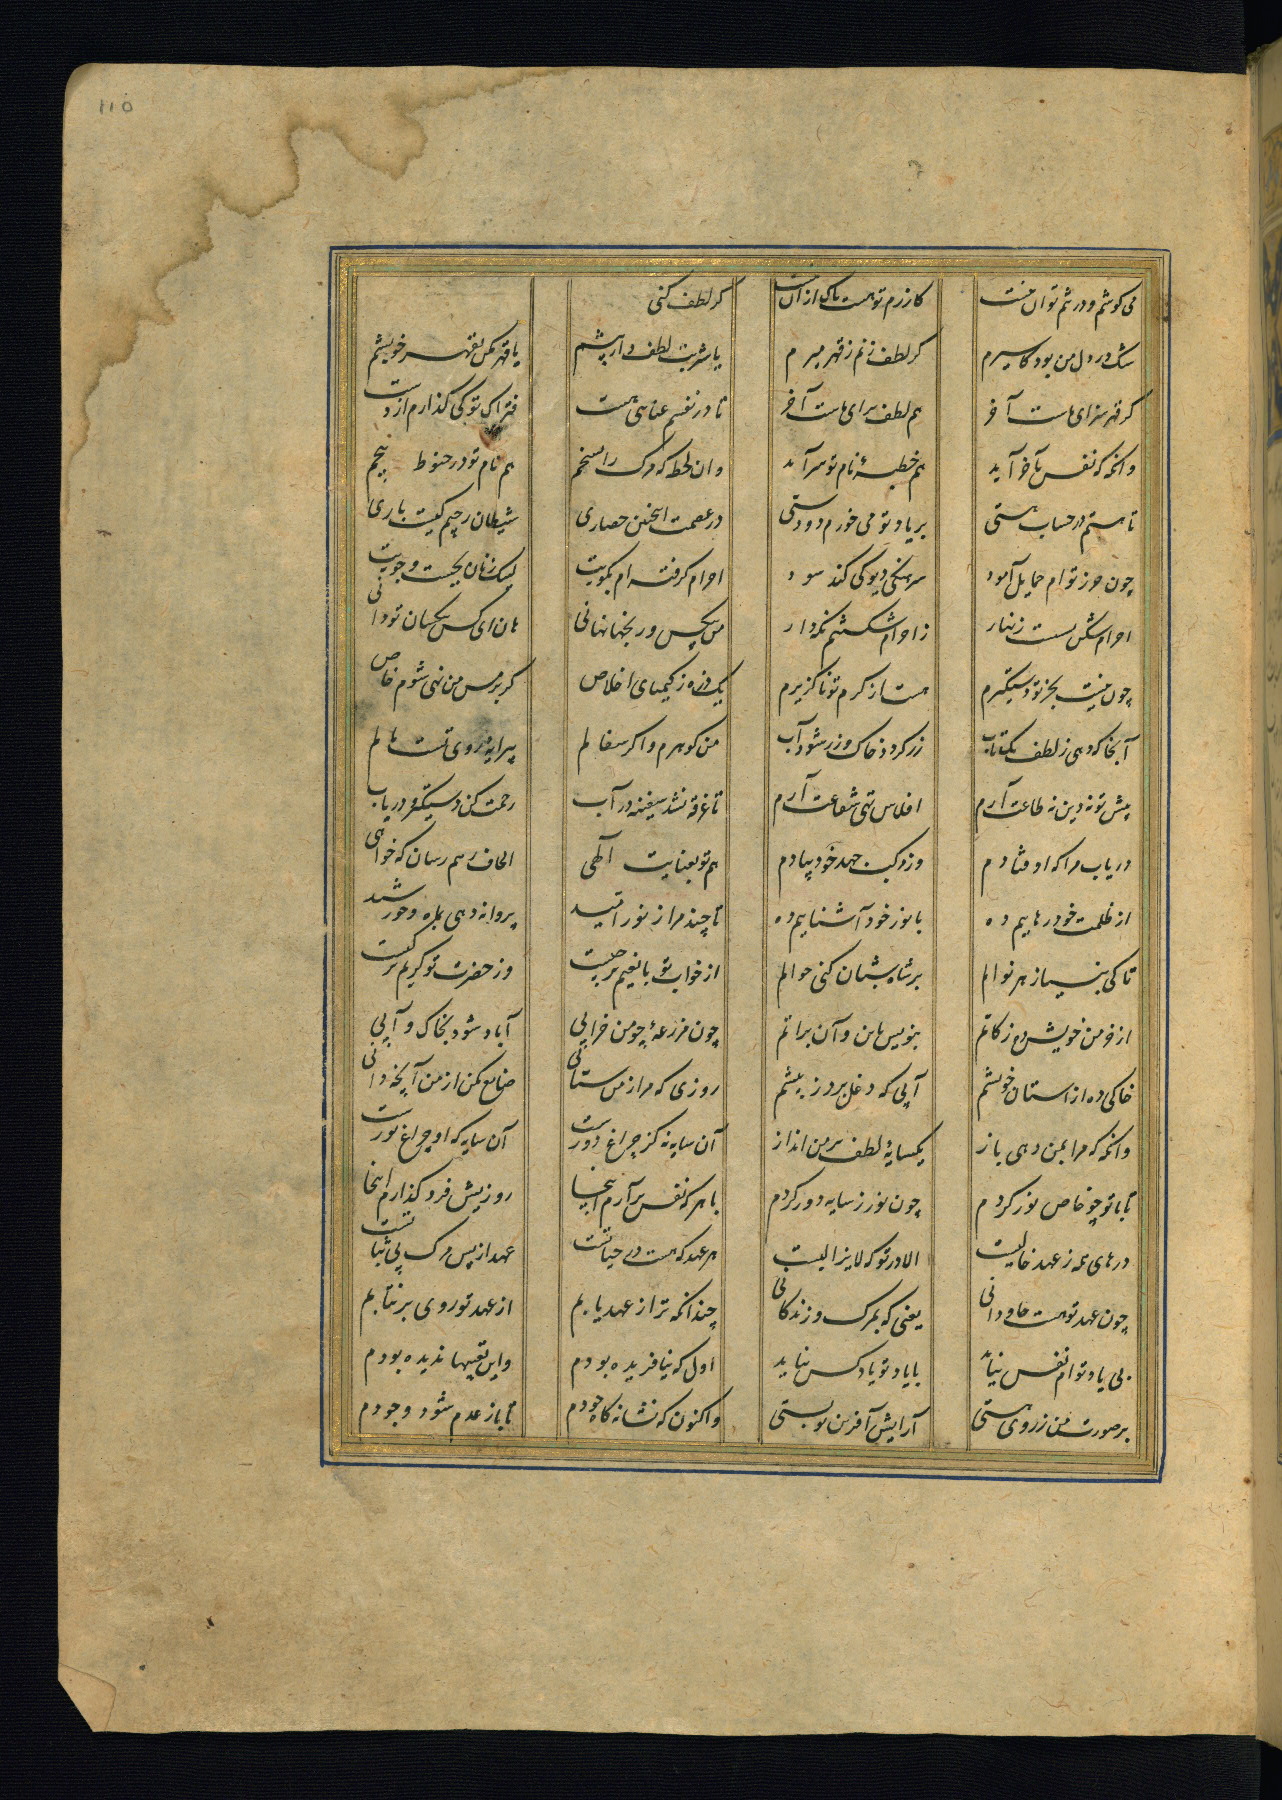 ۱۱۵
می کوشم و در تنم توان نیست کازرم تو هست باک از آن نیست گر لطف کنی
شک در دل من بود کاسیرم گر لطف زنم ز قهر میرم یا شربت لطف دار پیشم یا قهر مکن بقهر خویشم
گر قهر سزای ماست آخر هم لطف برای ماست آخر تا در نفسم عنایتی هست فتراک تو کی گذارم از دست
وانگه که نفس بآخر آید هم خطبهٔ نام تو سراید وان لحظه که مرگ را بسیجم هم نام تو در حنوط پیچم
تا هستم در حساب هستی بر یاد تو می خورم دو دستی در عصمت اینچنین حصاری شیطان رجیم کیست باری
چون حرز توام حمایل آمود سرهنگی دیو کی کند سود احرام گرفته ام بکویت لبیک زنان بجست و جویت
احرام شکن بسست زنهار ز احرام شکستنم نگهدار من بیکس و رخنها نهانی هان ای کس بیکسان تو دانی
چون نیست بجز تو دستگیرم هست از کرم تو ناگزیرم یک ذره ز کیمیای اخلاص گر بر مس من زنی شوم خاص
آنجا که دهی ز لطف یکتاب زر گردد خاک و در شود آب من گوهرم و اگر سفالم پیرایهٔ روی تست مالم
پیش تو نه دین نه طاعت آرم افلاس تهی شفاعت آرم تا غرقه نشد سفینه در آب رحمت کن و دستگیر و دریاب
دریاب مرا که اوفتادم وز مرکب جهد خود پیادم هم تو بعنایت الهی آنجاقدمم رسان که خواهی
از ظلمت خود رهاییم ده با نور خود آشناییم ده تا چند مرا ز نور امید پروانه دهی بماه و خورشید
تا کی بنیاز هر نوالم بر شاه و شبان کنی حوالم از خوان تو با نعیم تر چیست وز حضرت تو کریم تر کیست
از خرمن خویش ده زکاتم بنویس باین و آن براتم چون مزرعهٔ چو من خرابی آباد شود بخاک و آبی
خاکی ده از آستان خویشم آبی که دغل برد ز پیشم روزی که مرا ز من ستانی ضایع مکن از من آنچه دانی
وانگه که مرا بمن دهی باز یکسایهٔ لطف بر من انداز آن سایه نه کز چراغ دورست آن سایه که او چراغ نورست
تا با تو چو خاص نور گردم چون نور ز سایه دور گردم با هر که نفس برآرم اینجا روزیش فرو گذارم اینجا
درهای همه ز عهد خالیست الا در تو که لایزالیست هر عهد که هست در حیاتست عهد از پس مرگ بی ثباتست
چون عهد تو هست جاودانی یعنی که بمرگ و زندگانی چندانکه ترا ز عهد یابم از عهد تو روی برنتابم
بی یاد توام نفس نیاید با یاد تو یاد کس نیاید اول که نیافریده بودم واین تعبیها ندیده بودم
بر صورت من ز روی هستی آرایش آفرین تو بستی واکنون که نشانه گاه جودم تا باز عدم شود وجودم